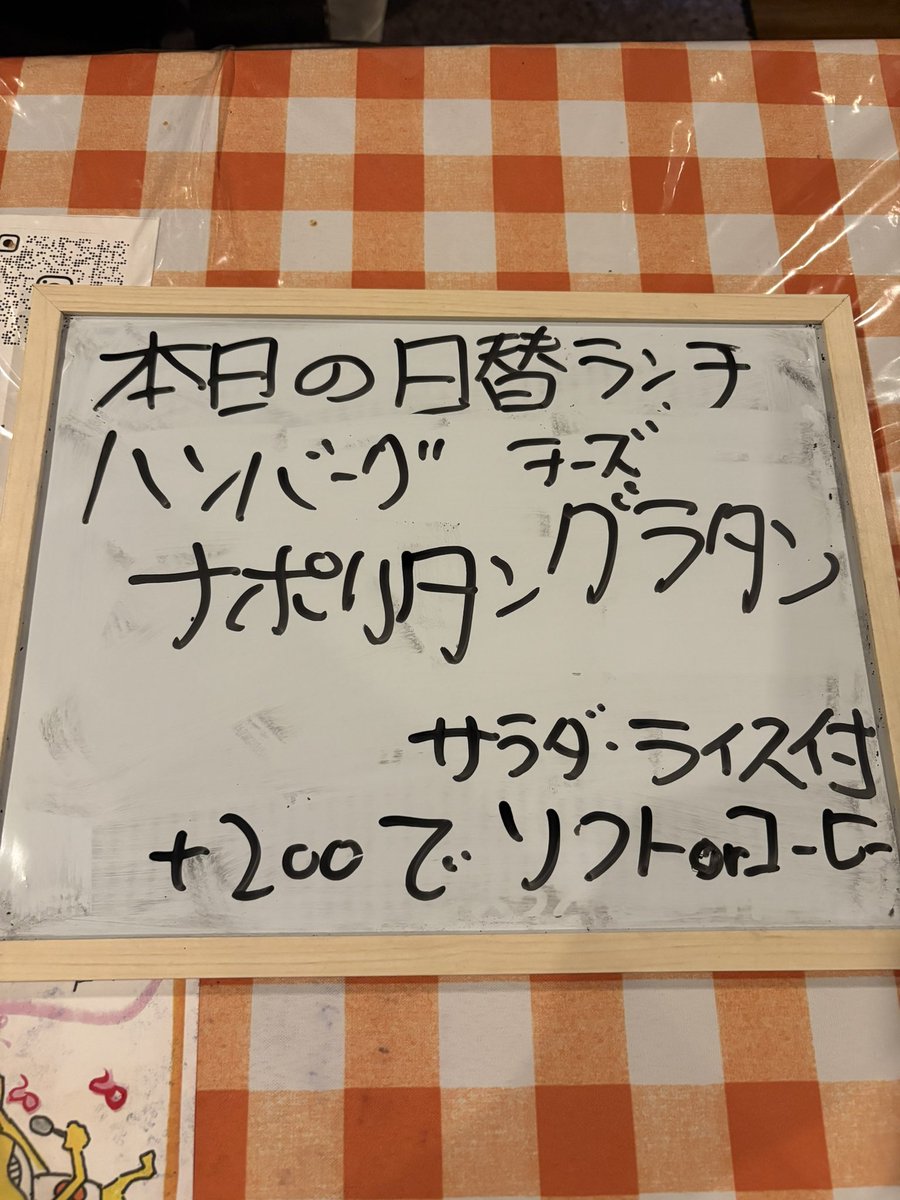 本日の日替ランチ
ハンバーグ チーズ
グラタン
ナポリタン
サラダ・ライス付
+200で ソフトorコーヒー